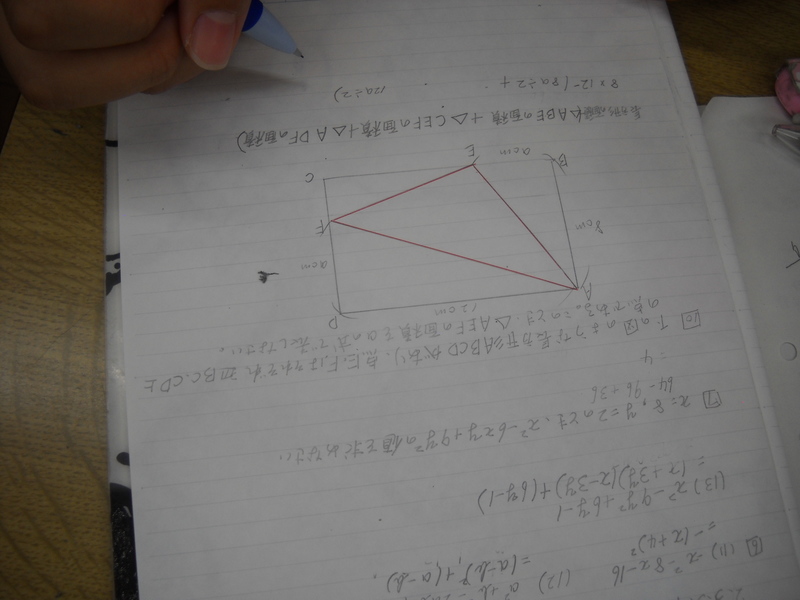 6 (11) -x²-8x-16
= -(x+4)²
(12)
=(a-b)²+(a-b)
(13) x²-9y²+6y-1
=(x+3y)(x-3y)+(6y-1)
7 x=8, y=2のとき、x²-6xy+9y²の値を求めなさい
64-96+36
=4
10 下の図のような長方形ABCDがあり、点E、Fはそれぞれ辺BC、CD上
の点である。このとき、△AEFの面積をaの式で表しなさい。
A
12cm
D
8cm
acm
F
B
acm
E
C
△ABEの面積+△CEFの面積+△ADFの面積)
8×12-(8a÷2+
12a÷2)